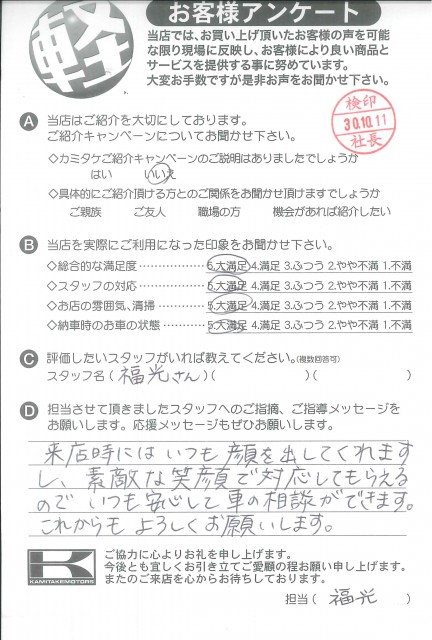 軽
お客様アンケート
当店では、お買い上げ頂いたお客様の声を可能
な限り現場に反映し、お客様により良い商品と
サービスを提供する事に努めています。
大変お手数ですが是非お声をお聞かせ下さい。
検印
30.10.11
社長
A 当店はご紹介を大切にしております。
ご紹介キャンペーンについてお聞かせ下さい。
◇カミタケご紹介キャンペーンのご説明はありましたでしょうか
はい いいえ
◇具体的にご紹介頂ける方とのご関係をお聞かせ頂けますでしょうか
ご親族 ご友人 職場の方 機会があれば紹介したい
B 当店を実際にご利用になった印象をお聞かせ下さい。
◇総合的な満足度 ・・・・・・・・・・ 5.大満足 4.満足 3.ふつう 2.やや不満 1.不満
◇スタッフの対応 ・・・・・・・・・・ 5.大満足 4.満足 3.ふつう 2.やや不満 1.不満
◇お店の雰囲気、清掃 ・・・・・・ 5.大満足 4.満足 3.ふつう 2.やや不満 1.不満
◇納車時のお車の状態 ・・・・・・ 5.大満足 4.満足 3.ふつう 2.やや不満 1.不満
C 評価したいスタッフがいれば教えてください。(複数回答可)
スタッフ名(福光さん)( )( )
D 担当させて頂きましたスタッフへのご指摘、ご指導メッセージを
お願いします。応援メッセージもぜひお願いします。
来店時にはいつも顔を出してくれます
し、素敵な笑顔で対応してもらえる
のでいつも安心して車の相談ができます。
これからもよろしくお願いします。
K
KAMITAKEMOTORS
ご協力に心よりお礼を申し上げます。
今後とも宜しくお引き立てご愛顧の程お願い申し上げます。
またのご来店を心からお待ちしております。
担当( 福光 )